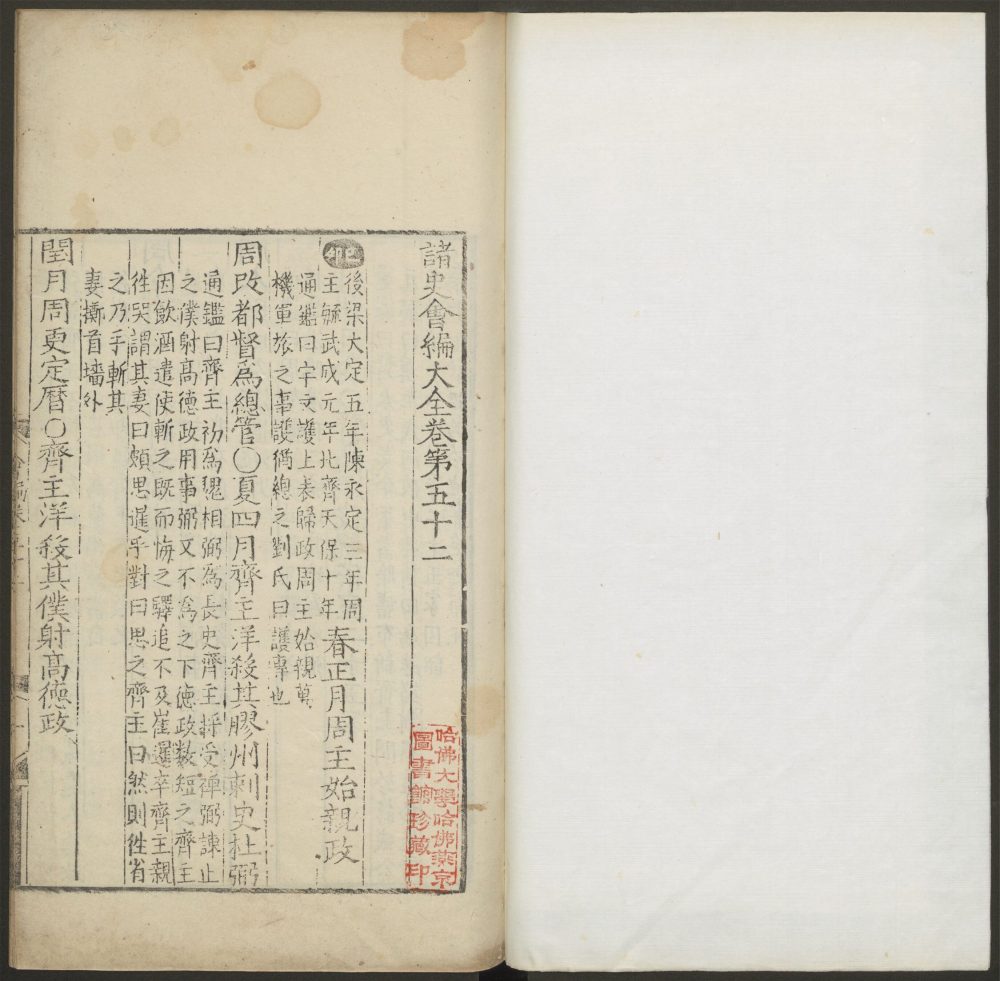 諸史會編大全卷第五十二
己卯
後梁大定五年陳永定三年周
主毓武成元年北齊天保十年
春正月周主始親政
通鑑曰宇文護上表歸政周主始親萬
機軍旅之事護猶總之劉氏曰護專也
周改都督爲總管○夏四月齊主洋殺其膠州刺史杜弼
通鑑曰齊主初爲魏相弼爲長史齊主將受禪弼諫止
之僕射高德政用事弼又不爲之下德政數短之齊主
因飲酒遣使斬之既而悔之驛追不及崔暹卒齊主親
徃哭謂其妻曰頗思暹乎對曰思之齊主曰然則徃省
之乃手斬其
妻擲首墻外
閏月周更定曆○齊主洋殺其僕射高德政
哈佛大學哈佛燕京
圖書館珍藏印